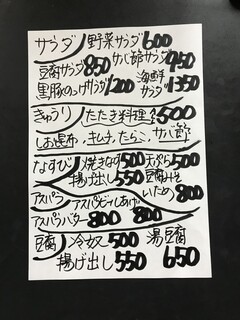 サラダ 野菜サラダ 600
豆腐サラダ 850 サバ節サラダ 950
黒豚のしゃぶサラダ 1200 海鮮サラダ 1350
きゅうり たたき料理 各500
しお昆布・キムチ・たらこ・サバ節
なすび 焼きなす 500 天ぷら 500
揚げ出し 550 豆腐みそいため 800
アスパラ アスパラビールあげ 800
アスパラバター 800
豆腐 冷奴 500 湯豆腐 650
揚げ出し 550